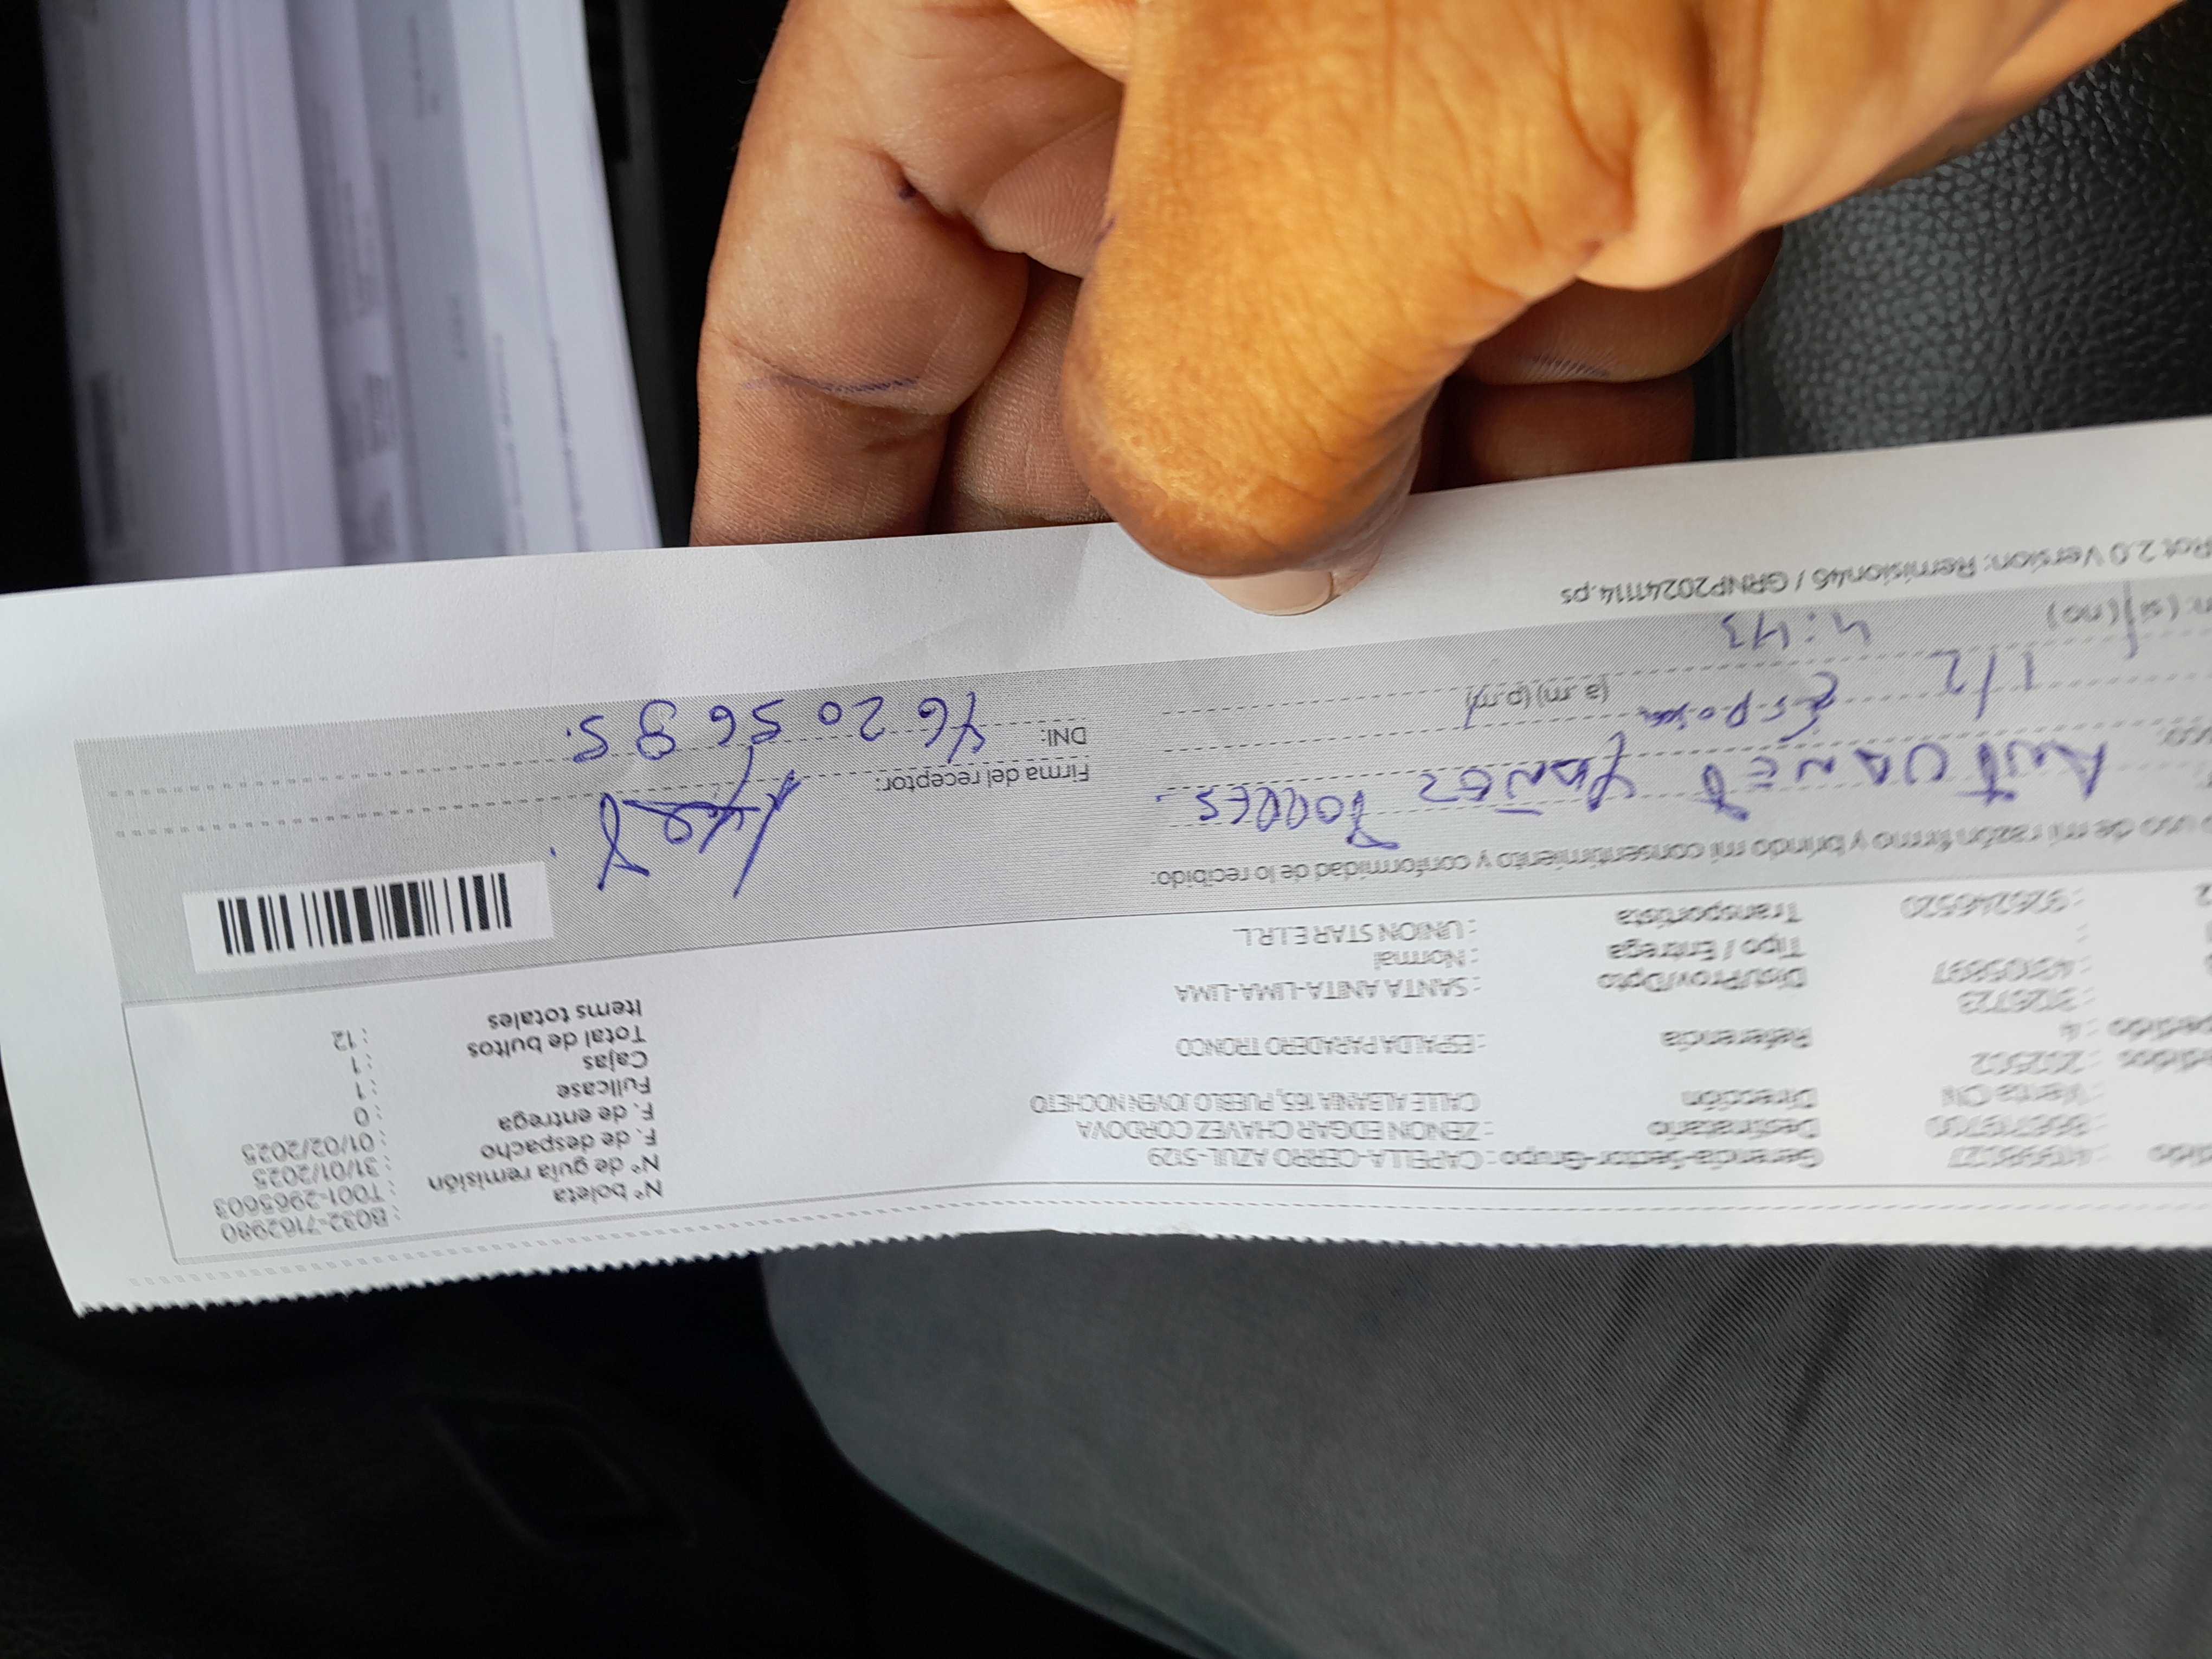 Gerencia-Sector-Grupo : CAPELLA-CERRO AZUL-5129
Destinatario : ZENON EDGAR CHAVEZ CORDOVA
Dirección CALLE ALBANIA 165, PUEBLO JOVEN NOCHETO
Referencia : ESPALDA PARADERO TRONCO
Dist/Prov/Dpto : SANTA ANITA-LIMA-LIMA
Tipo / Entrega : Normal
Transportista : UNION STAR E.I.R.L.
N° boleta : B032-7162980
N° de guía remisión : T001-2965603
F. de despacho : 31/01/2025
F. de entrega : 01/02/2025
Fullcase : 0
Cajas : 1
Total de bultos : 1
Items totales : 12
: Venta CN
: 202502
: 4
: 3126723
: 926246520
uso de mi razón firmo y brindo mi consentimiento y conformidad de lo recibido:
YAÑEZ TORRES.
Firma del receptor:
1/2 Esposa (a.m) (p.m)
DNI: 46205695.
(si) (no) 4:43
Rot 2.0 Version: Remision46 / GRNP20241114.ps